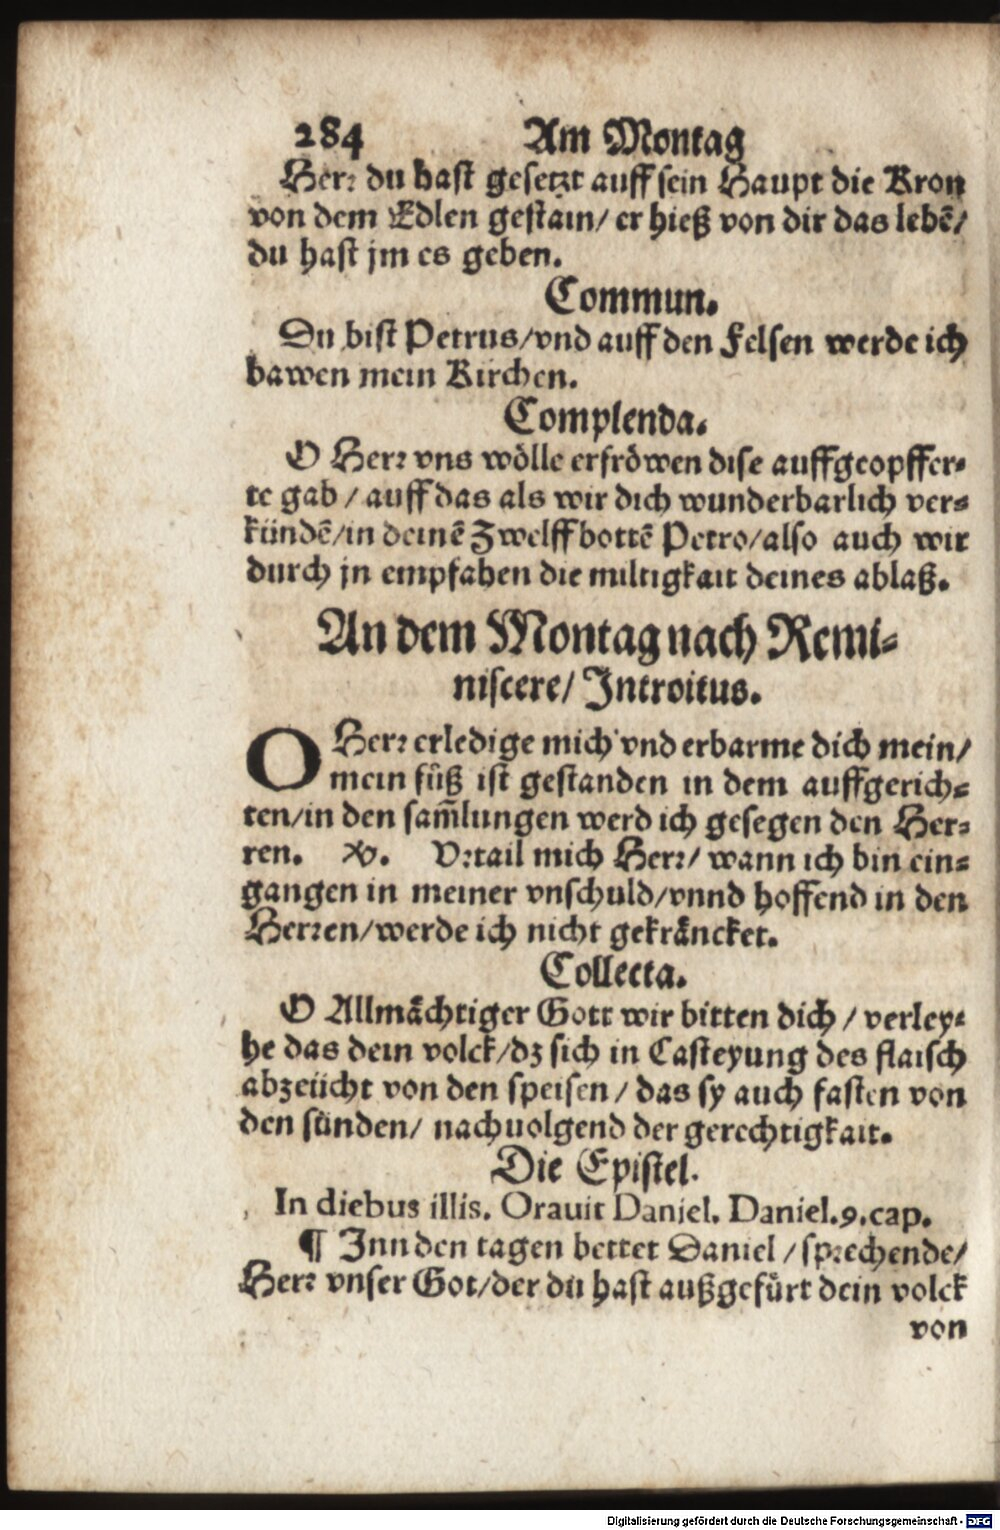 284 Am Montag
Herr du hast gesetzt auff sein Haupt die Kron
von dem Edlen gestain/ er hieß von dir das lebẽ/
du hast jm es geben.
Commun.
Du bist Petrus/vnd auff den Felsen werde ich
bawen mein Kirchen.
Complenda.
O Herr vns wölle erfröwen dise auffgeopffer-
te gab / auff das als wir dich wunderbarlich ver-
kündẽ/in deinẽ Zwelffbottẽ Petro/also auch wir
durch jn empfahen die miltigkait deines ablaß.
An dem Montag nach Remi-
niscere/ Introitus.
O Herr erledige mich vnd erbarme dich mein/
mein fůß ist gestanden in dem auffgerich-
ten/in den sam̃lungen werd ich gesegen den Her-
ren. ℣. Vrtail mich Herr/ wann ich bin ein-
gangen in meiner vnschuld/vnnd hoffend in den
Herren/werde ich nicht gekräncket.
Collecta.
O Allmächtiger Gott wir bitten dich / verley-
he das dein volck/dz sich in Casteyung des flaisch
abzeücht von den speisen / das sy auch fasten von
den sünden/ nachuolgend der gerechtigkait.
Die Epistel.
In diebus illis. Orauit Daniel. Daniel.9.cap.
¶ Inn den tagen bettet Daniel / sprechende/
Herr vnser Got/der du hast außgefürt dein volck
von
Digitalisierung gefördert durch die Deutsche Forschungsgemeinschaft - DFG